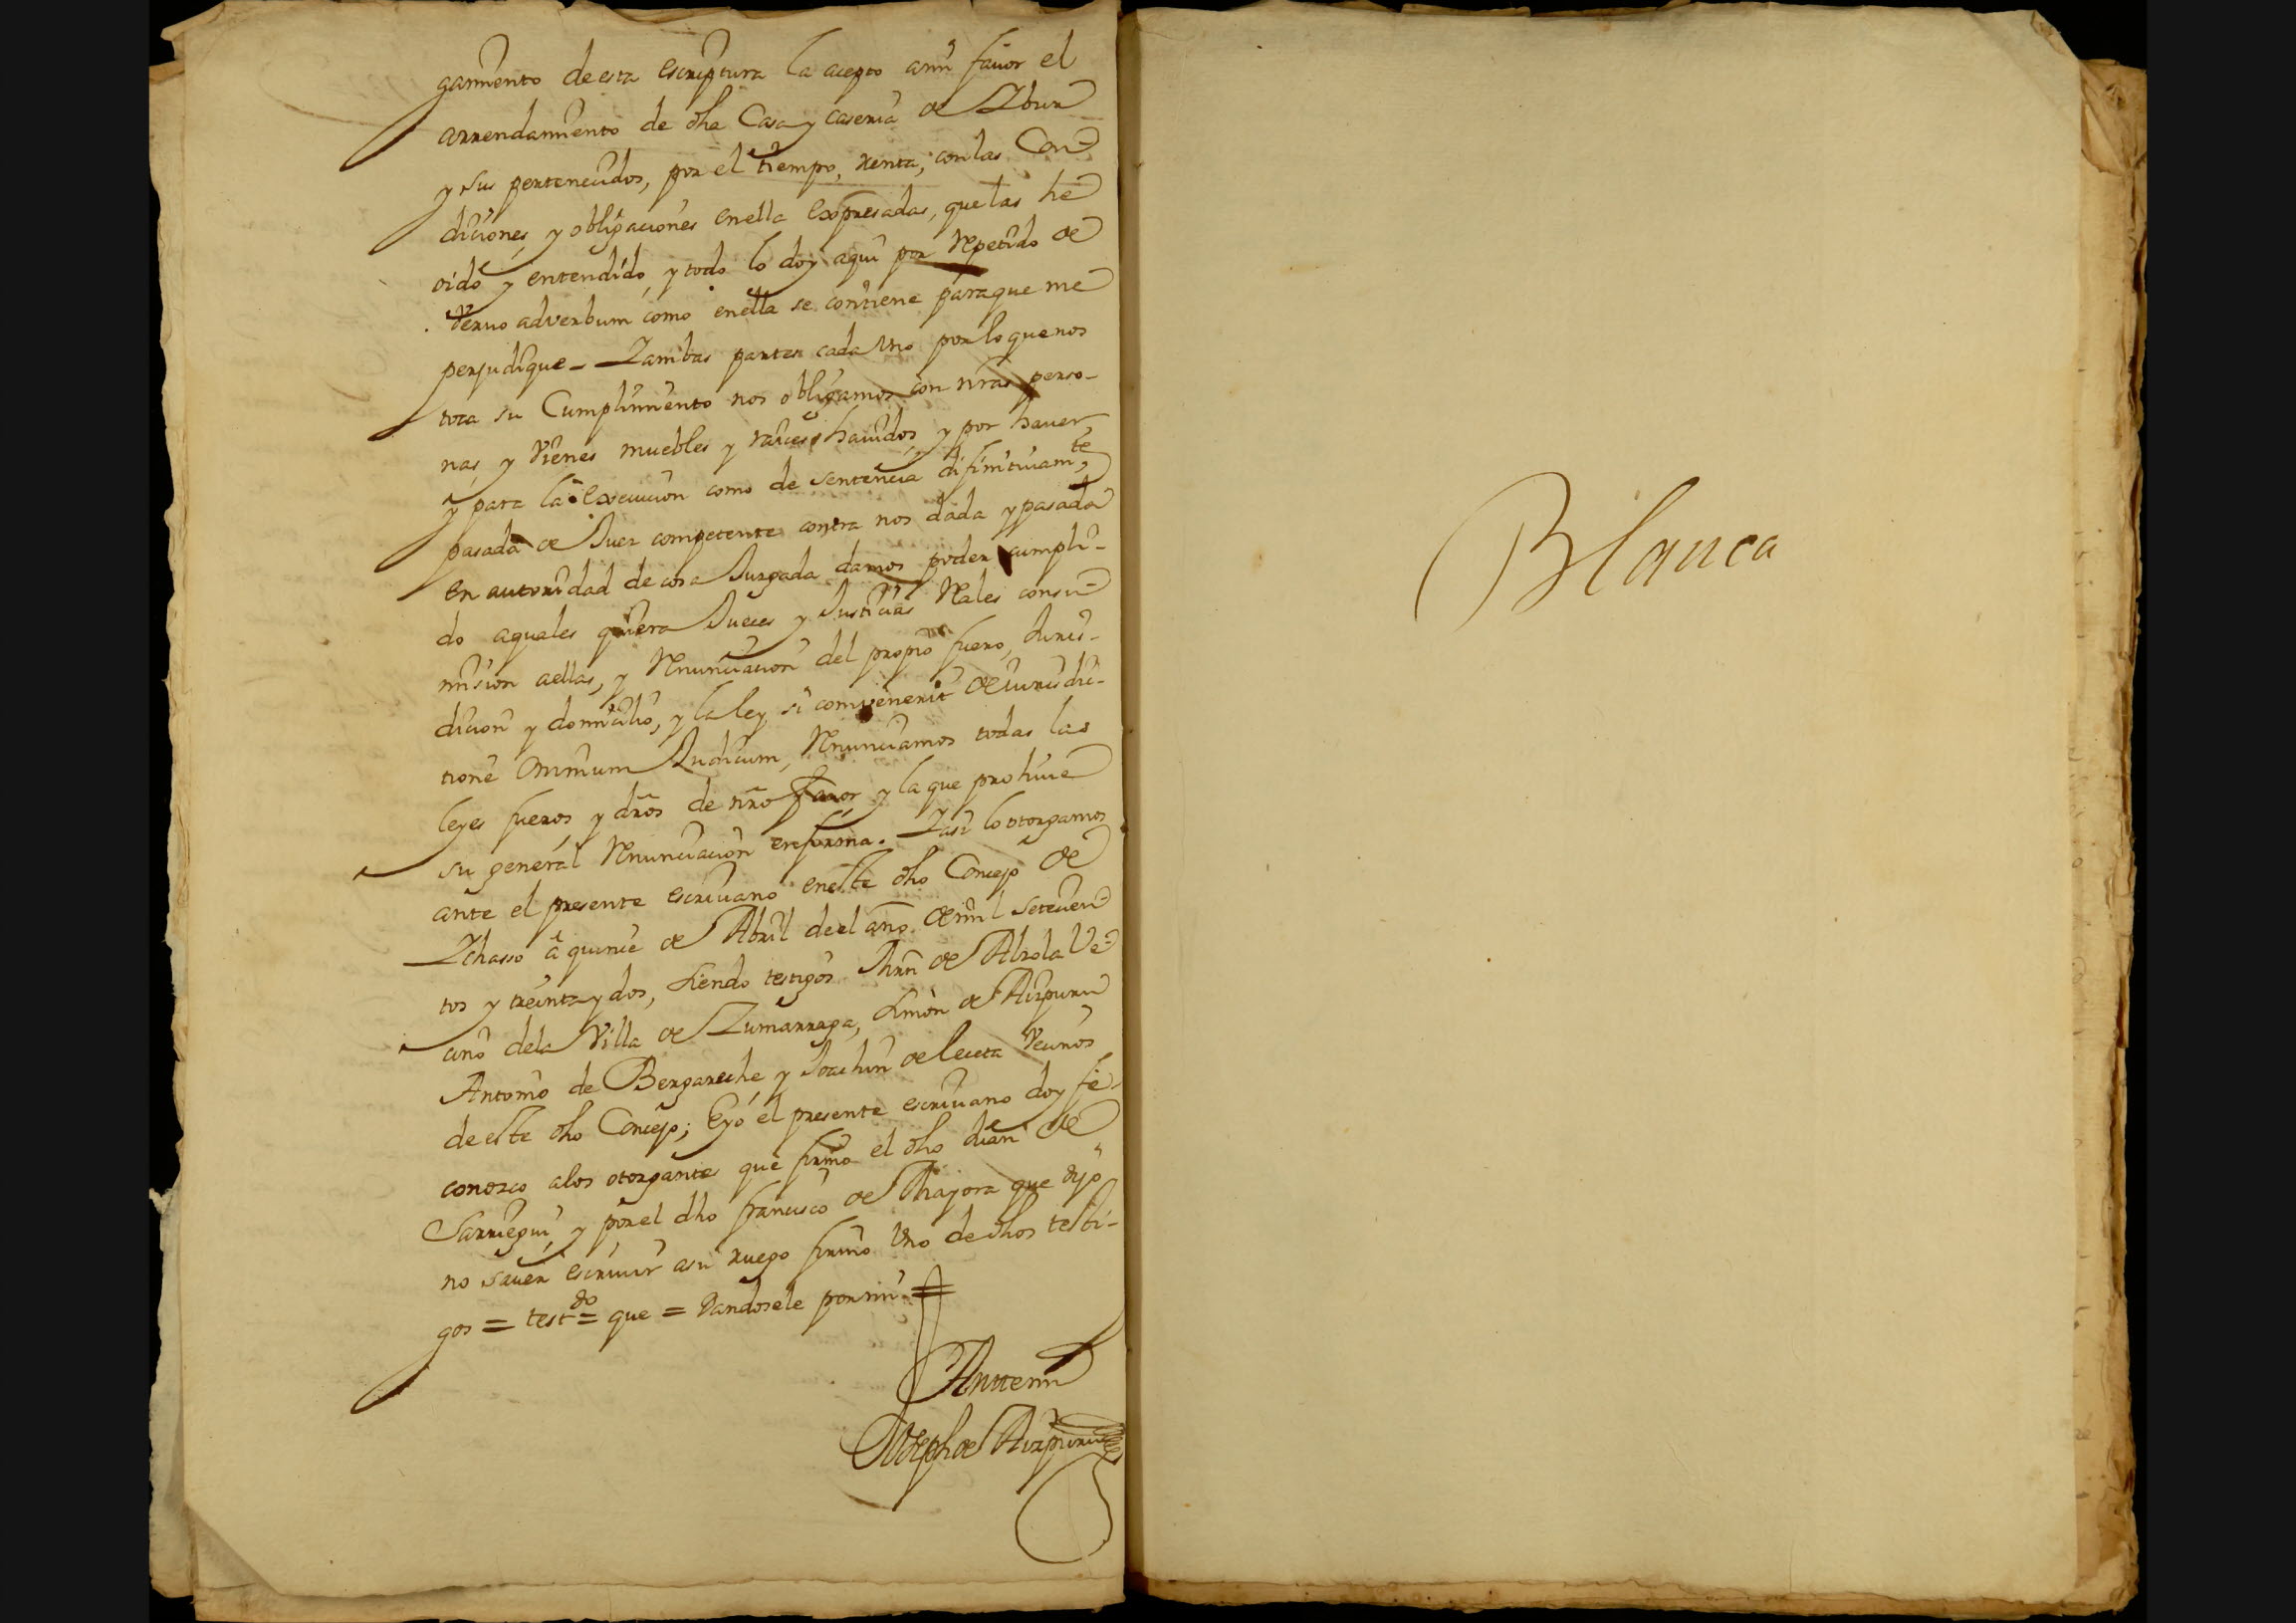 gamiento de esta escriptura la acepto ami favor el
arrendamiento de dha Casa y caseria de
y sus pertenecidos, por el tiempo, renta, con las Con-
diciones, y obligaciones enella expresadas, que las he
oido y entendido, y todo lo doy aqui por repetido de
veruo adverbum como enella se contiene paraque me
perjudique - Yambas partes cada Uno por lo que nos
toca su Cumplimiento nos obligamos con nras perso-
nas, y vienes muebles y raices hauidos, y por hauer,
y para la execucion como de sentencia difinitiuamte,
pasada de Juez competente contra nos dada y pasada
en autoridad de cosa Juzgada damos poder cumpli-
do aquales quiera Jueces y Justicias Reales consu-
mision aellas, y renunciacion del propio fuero, Juris-
dicion y domicilio, y la ley si convenerit de iurisdic-
tione omnium Judicum, renunciamos todas las
leyes fueros, y dros de nro fauor, y la que prohiue
su general renunciacion enforma. Yasi lo otorgamos
ante el presente escriuano eneste dho Concejo de
Ichasso à quince de Abril de el año de mil setecien-
tos y treinta y dos, siendo testigos de Alzola Ve-
cino dela Villa de Zumarraga, Simon de Aizpuru
Antonio de Bergareche, y Joachin de Vecinos
de este dho Concejo; Eyo el presente escriuano doy fe
conozco alos otorgantes que firmo el dho Juan de
Sarriegui, y por el dho francisco de que dijo
no sauer escriuir asu ruego firmo Uno de dhos testi-
gos = testdo = que = dandosele por mi =
Antemi
Joseph de Aizpuru
Blanca